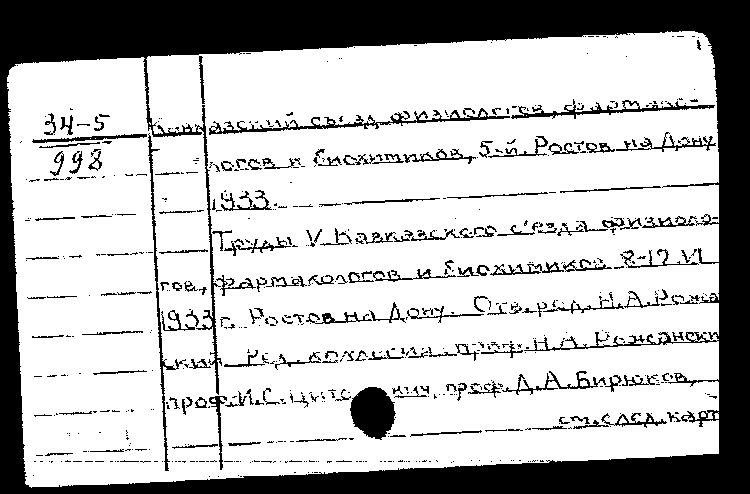 34-5
998
Кавказский съезд физиологов, фармако-
логов и биохимиков, 5-й. Ростов на Дону
1933.
Труды V Кавказского с'езда физиоло-
гов, фармакологов и биохимиков 8-12.VI
1933 г. Ростов на Дону. Отв. ред. Н.А. Рожа
ский Ред. коллегия: проф. Н.А. Рожански
проф. И.С. Цитович, проф. Д.А. Бирюков,
см. след. карт